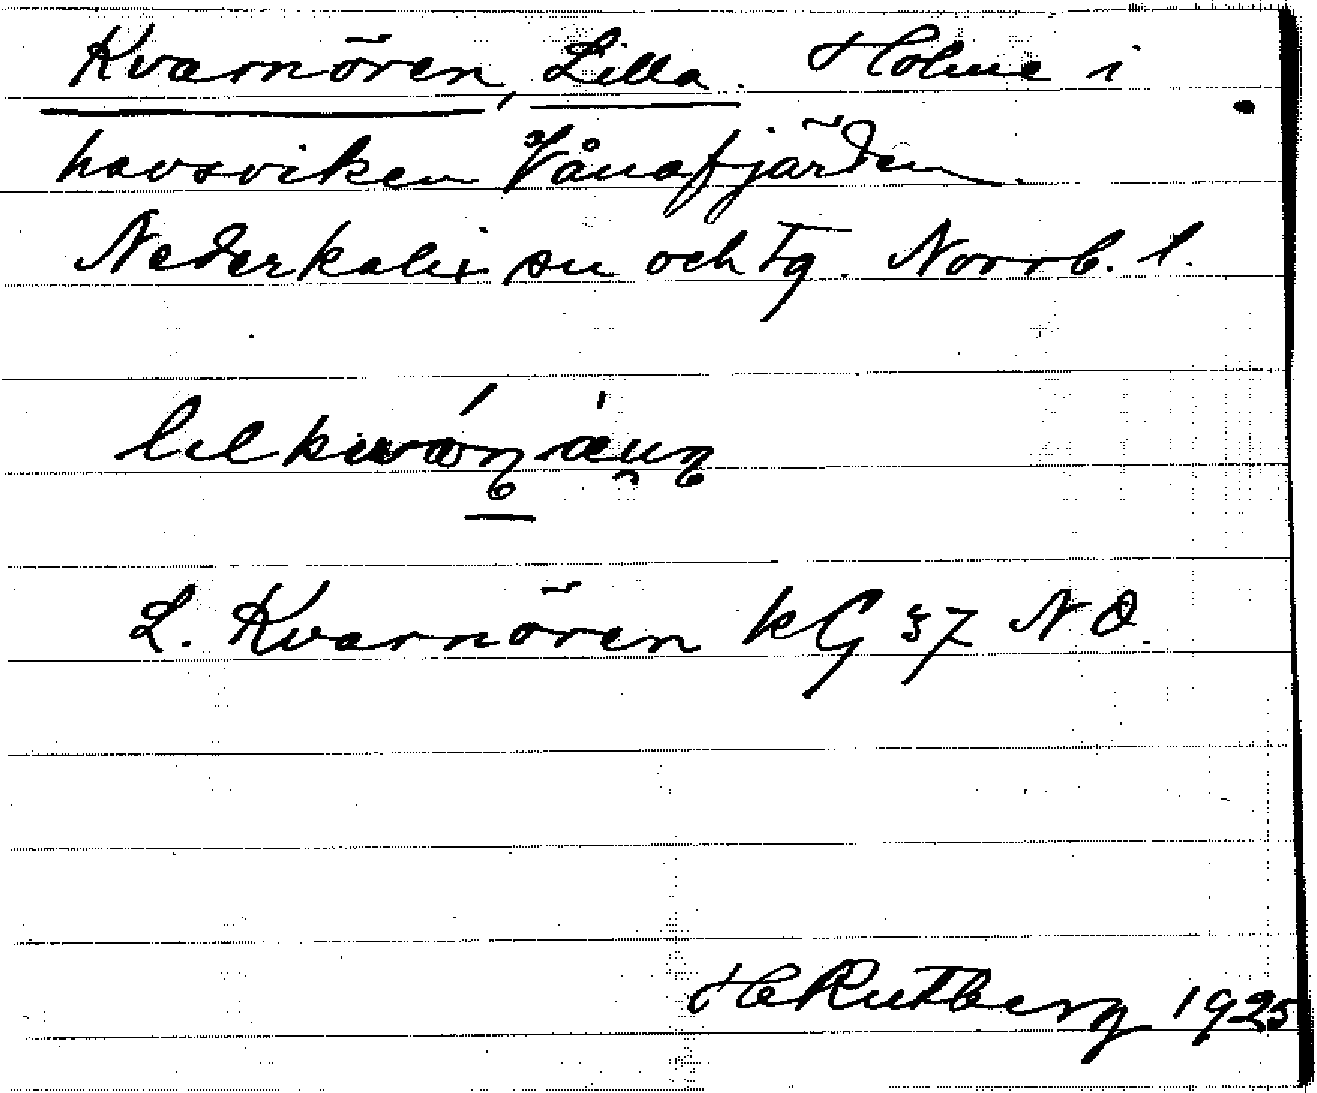 Kvarnören, Lilla. Holme i
havsviken Vånafjärden.
Nederkalix sn och tg. Norrb. l.
L. Kvarnören KG 37 NO.
H Rutberg 1925